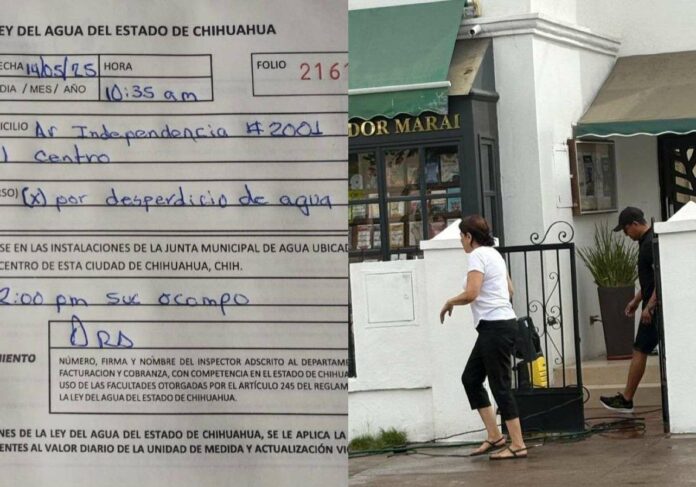 LEY DEL AGUA DEL ESTADO DE CHIHUAHUA
FECHA 14/05/25
HORA
DIA / MES / AÑO
10:35 am
FOLIO 2161
MICILIO Av Independencia #2001
centro
RSO) (x) por desperdicio de agua
SE EN LAS INSTALACIONES DE LA JUNTA MUNICIPAL DE AGUA UBICAD
CENTRO DE ESTA CIUDAD DE CHIHUAHUA, CHIH.
2:00 pm suc ocampo
MIENTO
NÚMERO, FIRMA Y NOMBRE DEL INSPECTOR ADSCRITO AL DEPARTAME
FACTURACION Y COBRANZA, CON COMPETENCIA EN EL ESTADO DE CHIHUA
USO DE LAS FACULTADES OTORGADAS POR EL ARTÍCULO 245 DEL REGLAM
LA LEY DEL AGUA DEL ESTADO DE CHIHUAHUA.
NES DE LA LEY DEL AGUA DEL ESTADO DE CHIHUAHUA, SE LE APLICA LA
ENTES AL VALOR DIARIO DE LA UNIDAD DE MEDIDA Y ACTUALIZACIÓN VI
DOR MARAI